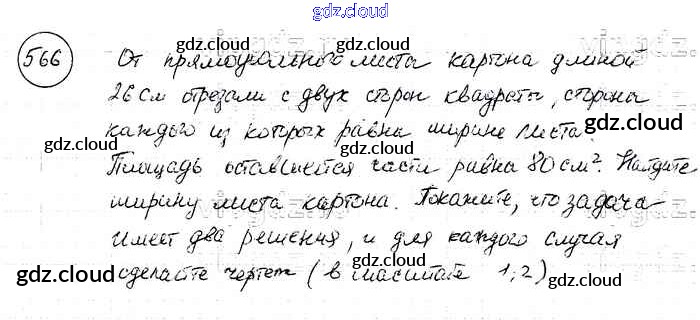 gdz.cloud
566 От прямоугольного листа картона длиной
26 см отрезали с двух сторон квадраты, стороны
каждого из которых равны ширине листа.
Площадь оставшейся части равна 80 см². Найдите
ширину листа картона. Покажите, что задача
имеет два решения, и для каждого случая
сделайте чертеж (в масштабе 1:2)
gdz.cloud